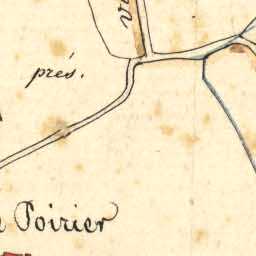 prés.
Poirier